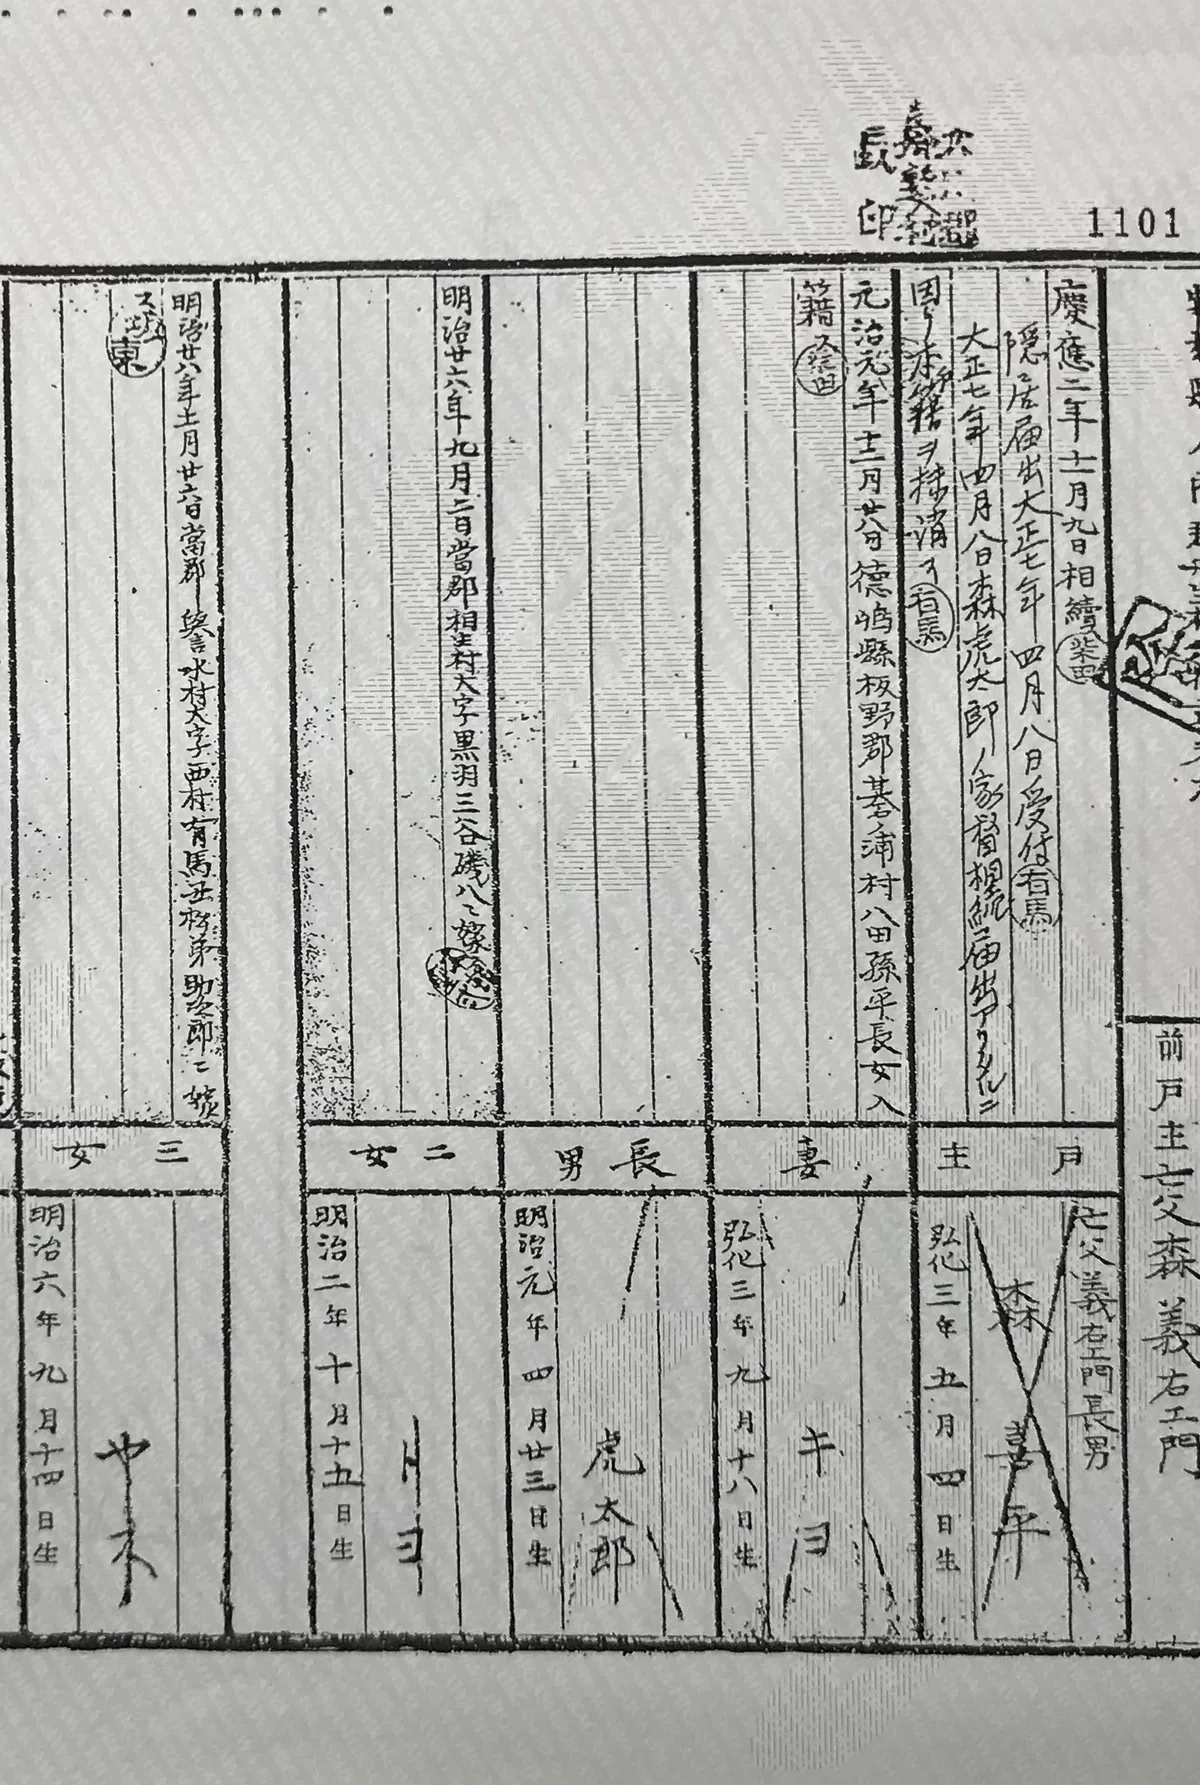 1101
長印
前戸主
亡父森義右エ門
慶應二年十一月九日相續
柴田
隠居届出大正七年四月八日受付
有馬
大正七年四月八日森虎太郎ノ家督相続届出アリタルニ
因リ本籍ヲ抹消ス
有馬
戸主
亡父義右エ門長男
森喜平
弘化三年五月四日生
元治元年十二月廿八日德嶋縣板野郡碁ノ浦村八田孫平長女入
籍ス
柴田
妻
キヨ
弘化三年九月十八日生
長男
虎太郎
明治元年四月廿三日生
明治廿六年九月二日當郡相生村大字黒羽三谷磯八ニ嫁
二女
トヨ
明治二年十月十五日生
明治廿八年十一月廿六日當郡譽水村大字西村有馬丑松弟助次郎ニ嫁
ス
三女
明治六年九月十四日生